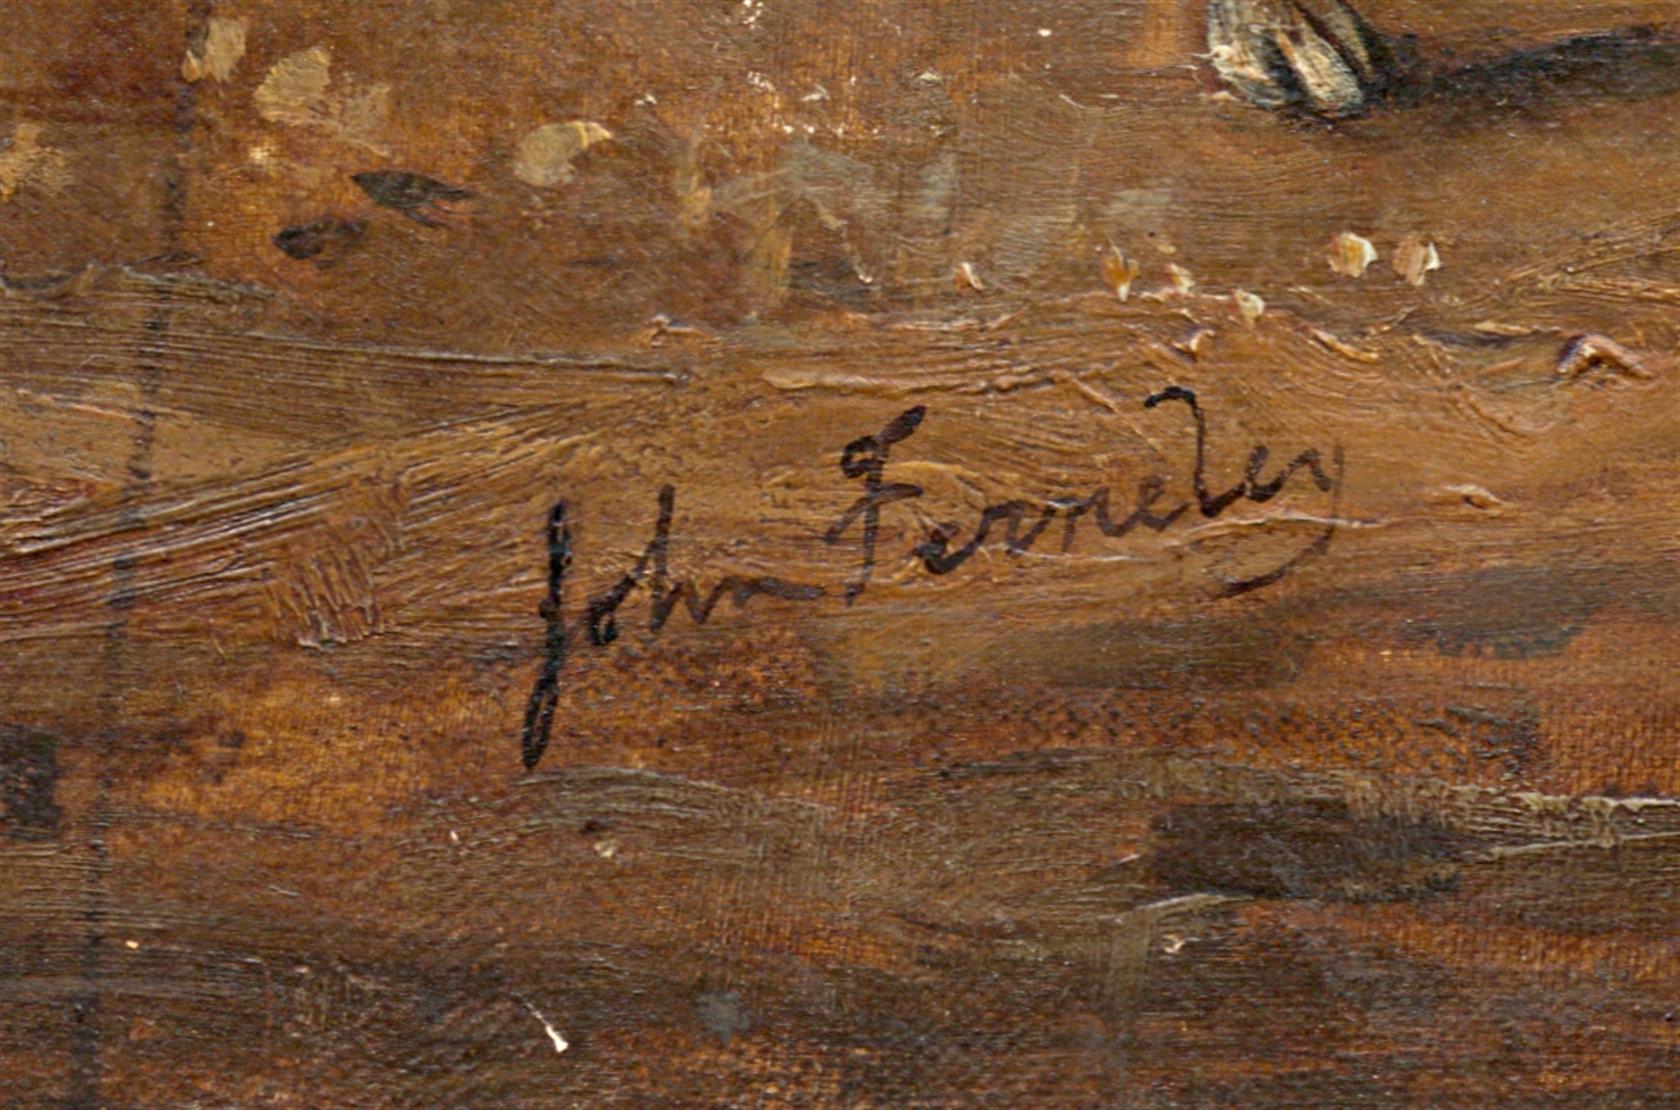 John Ferneley